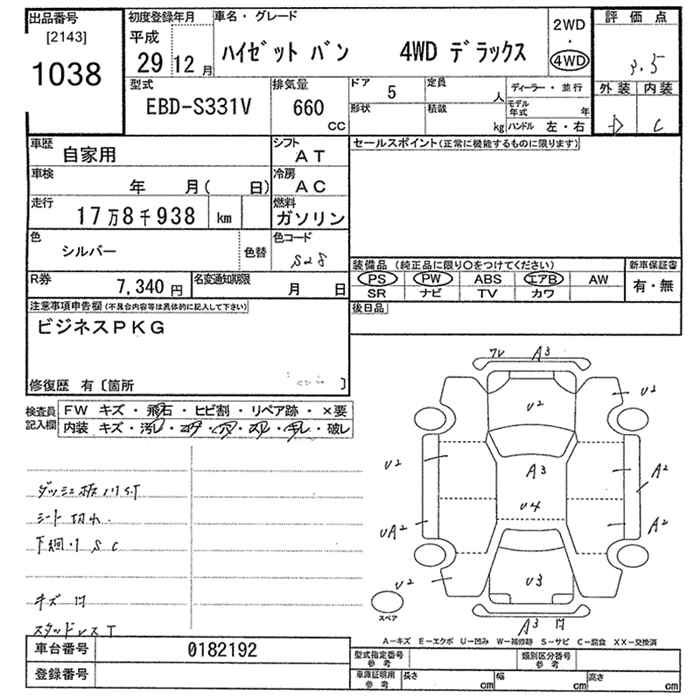 出品番号
[2143]
1038
初度登録年月
平成
29 12 月
車名・グレード
ハイゼット バン 4WD デラックス
2WD
・
4WD
評価点
3.5
外装 内装
D C
型式
EBD-S331V
排気量
660
CC
ドア 5
形状
定員 人
積載 kg
ディーラー・並行
モデル年式 年
ハンドル 左・右
車歴
自家用
シフト
AT
車検
年 月( 日)
冷房
AC
走行
17万8千938 km
燃料
ガソリン
色
シルバー
色替
色コード
S28
R券
7,340 円
名変通知期限
月 日
セールスポイント(正常に機能するものに限ります)
装備品 (純正品に限り○をつけてください)
新車保証書
PS PW ABS エアB AW
有・無
SR ナビ TV カワ
後日品
注意事項申告欄(不具合内容等は具体的に記入して下さい)
ビジネスPKG
修復歴 有〔箇所 〕
検査員記入欄
FW キズ・飛石・ヒビ割・リペア跡・×要
内装 キズ・汚レ・コゲ・穴・スレ・キレ・破レ
シート切れ.
下廻り SC
スタッドレス T
A3
U2
U2
U2
A3
A2
U4
UA2
A2
U2
U3
A3
スペア
A-キズ E-エクボ U-凹み W-補修跡 S-サビ C-腐食 XX-交換済
車台番号
0182192
登録番号
型式指定番号
参考
類別区分番号
参考
車庫証明用
参考
長さ cm
幅 cm
高さ cm